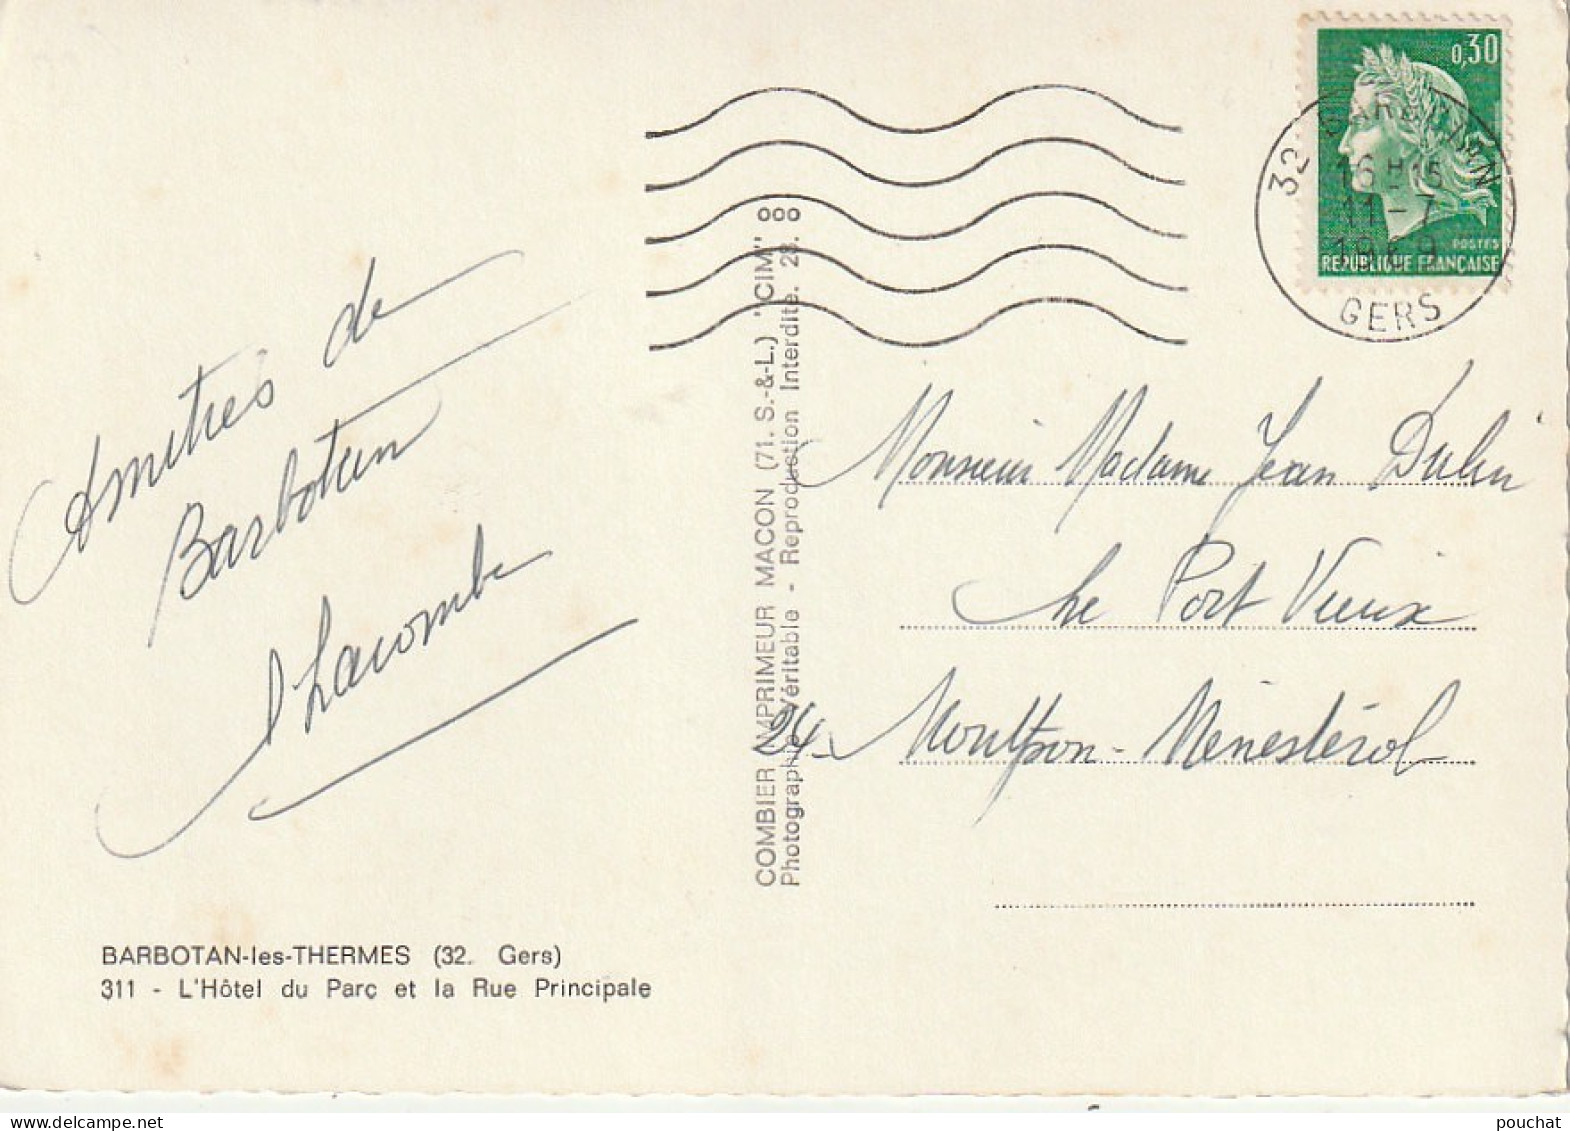 0,30
32 BARBOTAN
16 H 15
11-7
1969
GERS
POSTES
REPUBLIQUE FRANÇAISE
Amitiés de
Barbotan
Lacombe
COMBIER IMPRIMEUR MACON (71. S.-&-L.) "CIM" ooo
Photographie Véritable - Reproduction Interdite. 28.
Monsieur Madame Jean
Le Port Vieux
24 Montpon-Ménestérol
BARBOTAN-les-THERMES (32. Gers)
311 - L'Hôtel du Parc et la Rue Principale
pouchat